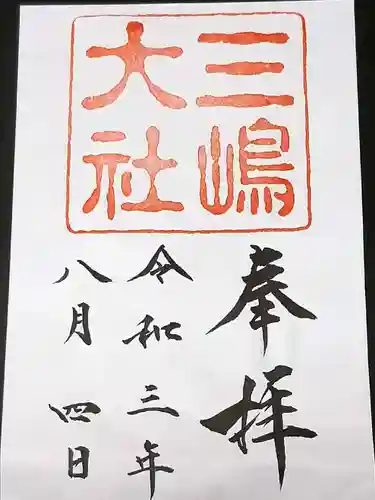 三嶋
大社
奉拝
令和三年
八月四日